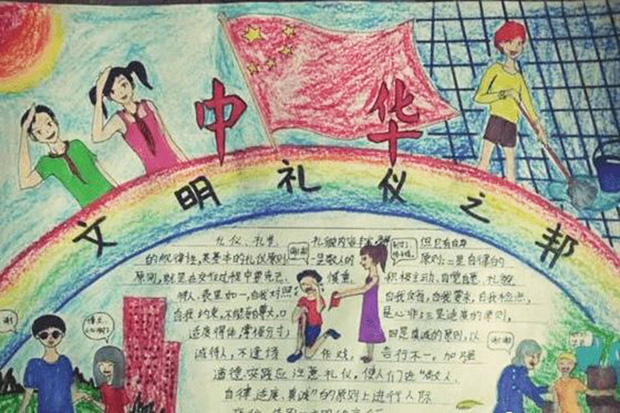 中 华
文明礼仪之邦
礼仪、礼节 礼貌内容丰富 但它有自身
的规律性,其基本的礼仪原则 谢谢 一是敬人的 原则;二是自律的
原则,就是在交往过程中要克己、 慎重、 积极主动、自觉自愿、礼貌
待人、表里如一,自我对照 自我反省,自我要求,自我检点,
自我约束,不能妄自尊大,口 是心非;三是适度的原则,
适度得体,掌握分寸; 四是真诚的原则,以
诚待人,不逢场 作戏, 言行不一,加强
道德实践应注意礼仪,使人们在“敬人、
自律、适度、真诚”的原则上进行人际
谢谢